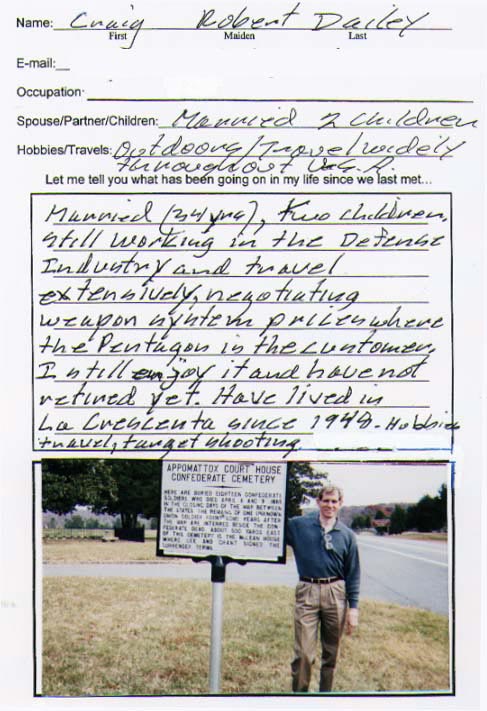 Name: Craig Robert Dailey
First Maiden Last
E-mail:
Occupation:
Spouse/Partner/Children: Married 2 children
Hobbies/Travels: Outdoors/Travel widely
throughout U.S.A.
Let me tell you what has been going on in my life since we last met...
Married (34 yrs), two children,
still working in the Defense
Industry and travel
extensively, negotiating
weapon system prices where
the Pentagon is the customer.
I still enjoy it and have not
retired yet. Have lived in
La Crescenta since 1949. Hobbies
travel, target shooting
APPOMATTOX COURT HOUSE
CONFEDERATE CEMETERY
HERE ARE BURIED EIGHTEEN CONFEDERATE
SOLDIERS WHO DIED APRIL 8 AND 9 1865
IN THE CLOSING DAYS OF THE WAR BETWEEN
THE STATES. THE REMAINS OF ONE UNKNOWN
UNION SOLDIER FOUND SOME YEARS AFTER
THE WAR ARE INTERRED BESIDE THE CON-
FEDERATE DEAD. ABOUT 500 YARDS EAST
OF THIS CEMETERY IS THE McLEAN HOUSE
WHERE LEE AND GRANT SIGNED THE
SURRENDER TERMS.